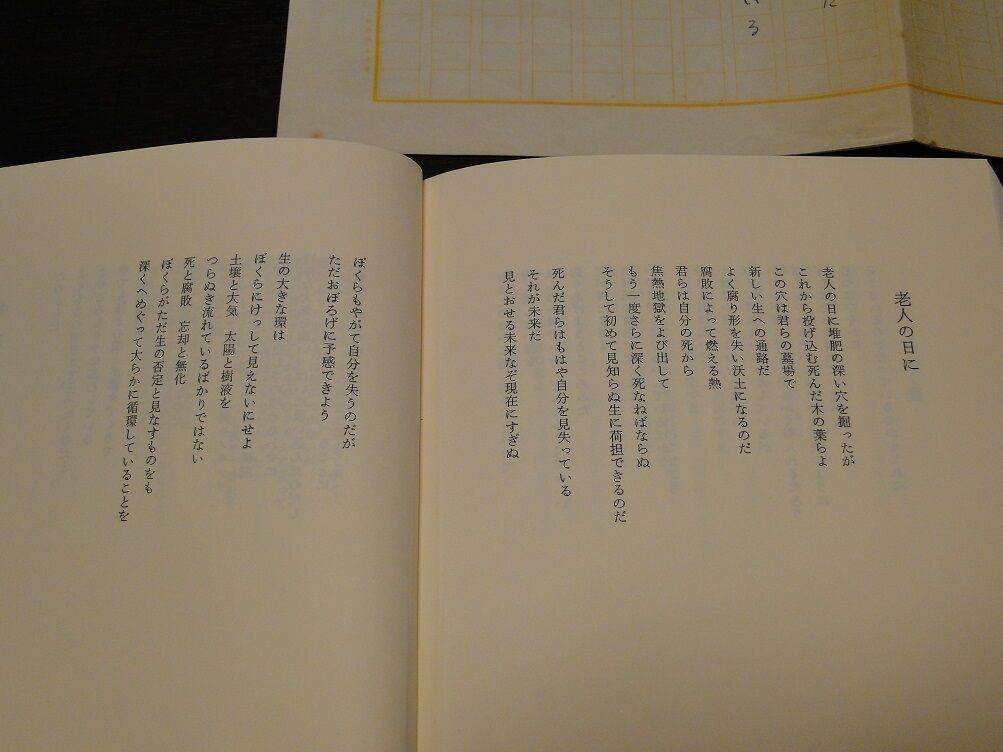 いる
に
老人の日に
老人の日に堆肥の深い穴を掘ったが
これから投げ込む死んだ木の葉らよ
この穴は君らの墓場で
新しい生への通路だ
よく腐り形を失い沃土になるのだ
腐敗によって燃える熱
君らは自分の死から
焦熱地獄をよび出して
もう一度さらに深く死なねばならぬ
そうして初めて見知らぬ生に荷担できるのだ
死んだ君らはもはや自分を見失っている
それが未来だ
見とおせる未来なぞ現在にすぎぬ
ぼくらもやがて自分を失うのだが
ただおぼろげに予感できよう
生の大きな環は
ぼくらにけっして見えないにせよ
土壌と大気　太陽と樹液を
つらぬき流れているばかりではない
死と腐敗　忘却と無化
ぼくらがただ生の否定と見なすものをも
深くへめぐって大らかに循環していることを